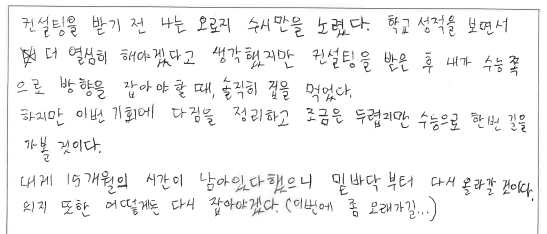 컨설팅을 받기 전 나는 오로지 수시만을 노렸다. 학교 성적을 보면서
더 열심히 해야겠다고 생각했지만 컨설팅을 받은 후 내가 수능쪽
으로 방향을 잡아야 할 때, 솔직히 겁을 먹었다.
하지만 이번 기회에 다짐을 정리하고 조금은 두렵지만 수능으로 한번 길을
가볼 것이다.
내게 15개월의 시간이 남아있다했으니 밑바닥부터 다시 올라갈 것이다.
의지 또한 어떻게든 다시 잡아야겠다. (이번에 좀 오래가길...)